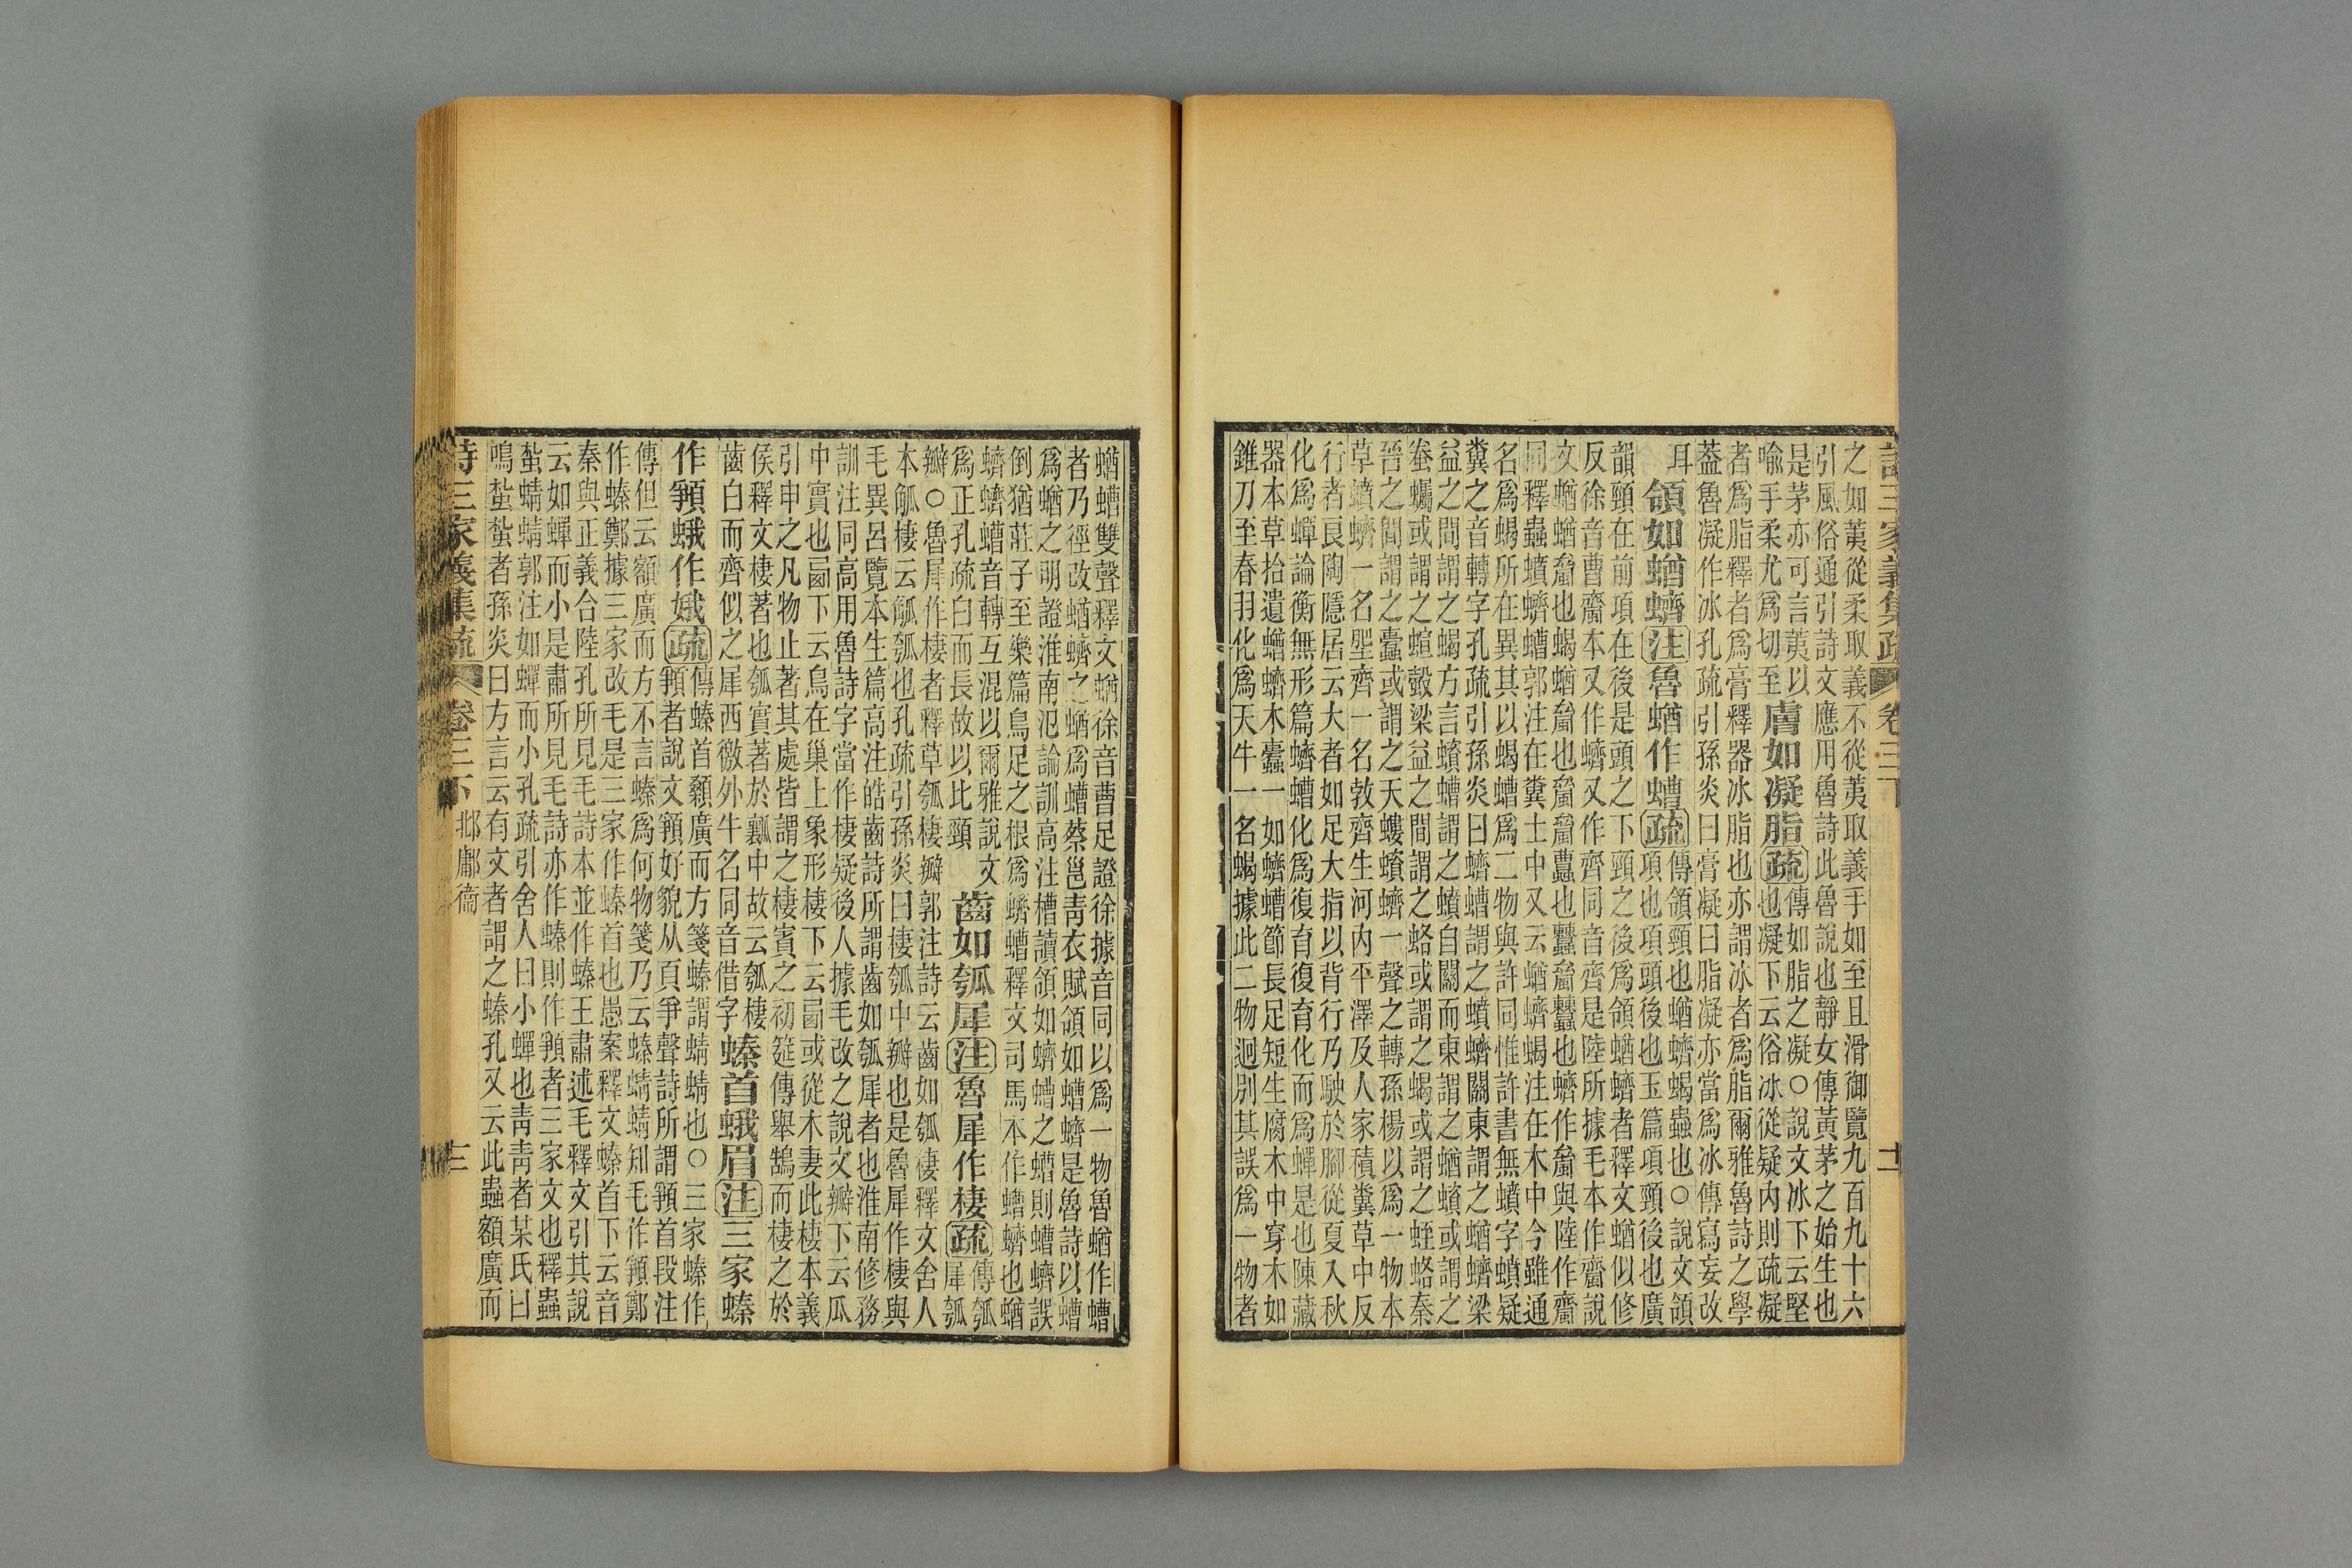 詩三家義集疏 卷三下 十二
之如荑從柔取義不從荑取義手如至且滑御覽九百九十六
引風俗通引詩文應用魯詩此魯說也靜女傳黃茅之始生也
是茅亦可言荑以
喻手柔尤爲切至
膚如凝脂疏
傳如脂之凝○說文冰下云堅
也凝下云俗冰從疑內則疏凝
者爲脂釋者爲膏釋器冰脂也亦謂冰者爲脂爾雅魯詩之學
蓋魯凝作冰孔疏引孫炎曰膏凝曰脂凝亦當爲冰傳寫妄改
耳
領如蝤蠐注魯蝤作螬疏
傳領頸也蝤蠐蝎蟲也○說文領
項也項頭後也玉篇項頸後也廣
韻頸在前項在後是頭之下頸之後爲領蝤蠐者釋文蝤似修
反徐音曹齏本又作蠐又作齊同音齊是陸所據毛本作齏說
文蝤蝤齏也蝎蝤齏也齏齏蠹也蠹齏蠹也蠐作齏與陸作齏
同釋蟲蟦蠐螬郭注在糞土中又云蝤蠐蝎注在木中今雖通
名爲蝎所在異其以蝎螬爲二物與許同惟許書無蟦字蟦疑
糞之音轉字孔疏引孫炎曰蠐螬謂之蟦蠐關東謂之蝤蠐梁
益之間謂之蝎方言蠀螬謂之蟦自關而東謂之蝤蠀或謂之
蛬蠾或謂之蝖毂梁益之間謂之蛒或謂之蝎或謂之蛭蛒秦
晉之間謂之蠹或謂之天螻蠀蠐一聲之轉孫楊以爲一物本
草蟦蠐一名䘍齊一名敦齊生河内平澤及人家積糞草中反
行者良陶隱居云大者如足大指以背行乃駛於腳從夏入秋
化爲蟬論衡無形篇蠐螬化爲復育復育化而爲蟬是也陳藏
器本草拾遺螬蠐木蠹一如蠐螬節長足短生腐木中穿木如
錐刀至春羽化爲天牛一名蝎據此二物迥別其誤爲一物者
蝤螬雙聲釋文蝤徐音曹足證徐據音同以爲一物魯蝤作螬
者乃徑改蝤蠐之蝤爲螬蔡邕青衣賦領如螬蠐是魯詩以螬
爲蝤之明證淮南氾論訓高注槽讀領如蠐螬之螬則螬蠐誤
倒猶莊子至樂篇烏足之根爲蠐螬釋文司馬本作螬蠐也蝤
蠐蠐螬音轉互混以爾雅說文
爲正孔疏白而長故以比頸
齒如瓠犀注魯犀作棲疏
傳瓠
犀瓠
瓣○魯犀作棲者釋草瓠棲瓣郭注詩云齒如瓠棲釋文舍人
本瓠棲云瓠瓠也孔疏引孫炎曰棲瓠中瓣也是魯犀作棲與
毛異呂覽本生篇高注皓齒詩所謂齒如瓠犀者也淮南修務
訓注同高用魯詩字當作棲疑後人據毛改之說文瓣下云瓜
中實也㢴下云鳥在巢上象形棲下云㢴或從木妻此棲本義
引申之凡物止著其處皆謂之棲賓之初筵傳舉鵠而棲之於
侯釋文棲著也瓠實著於瓤中故云瓠棲
齒白而齊似之犀西徼外牛名同音借字
螓首蛾眉注三家螓
作䫜蛾作娥疏
傳螓首顙廣而方箋螓謂蜻蜻也○三家螓作
䫜者說文䫜好貌从頁爭聲詩所謂䫜首段注
傳但云額廣而方不言螓爲何物箋乃云螓蜻蜻知毛作䫜鄭
作螓鄭據三家改毛是三家作螓首也愚案釋文螓首下云音
秦與正義合陸孔所見毛詩本並作螓王肅述毛釋文引其說
云如蟬而小是肅所見毛詩亦作螓則作䫜者三家文也釋蟲
蚻蜻蜻郭注如蟬而小孔疏引舍人曰小蟬也青青者某氏曰
鳴蚻蚻者孫炎曰方言云有文者謂之螓孔又云此蟲額廣而
詩三家義集疏 卷三下 邶鄘衞 三